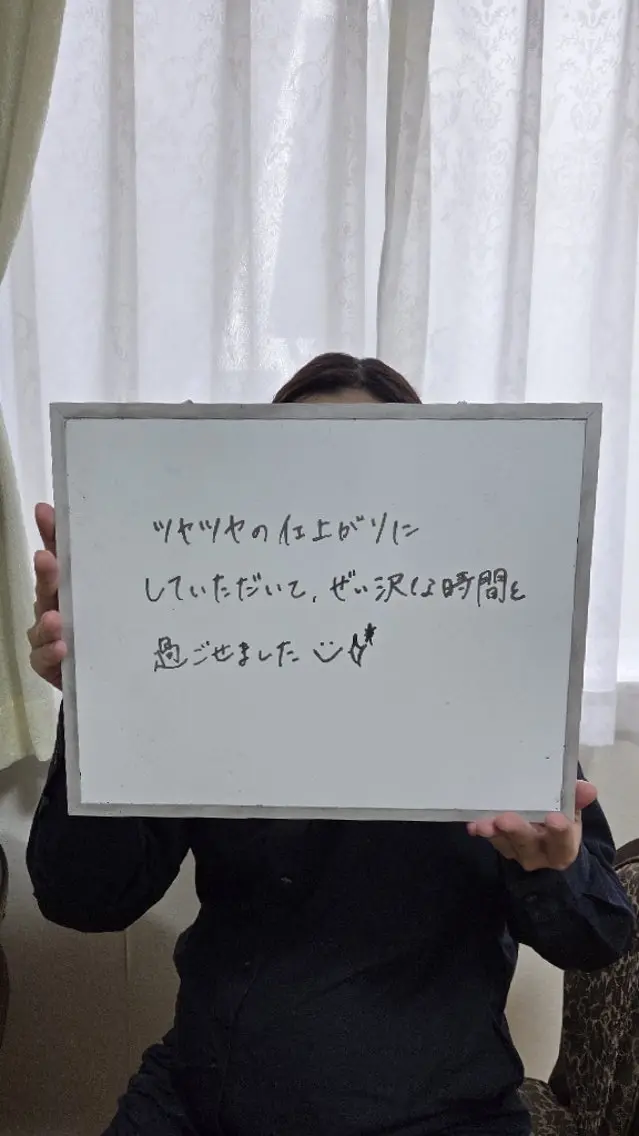 ツヤツヤの仕上がりに
していただいて、ぜい沢な時間を
過ごせました